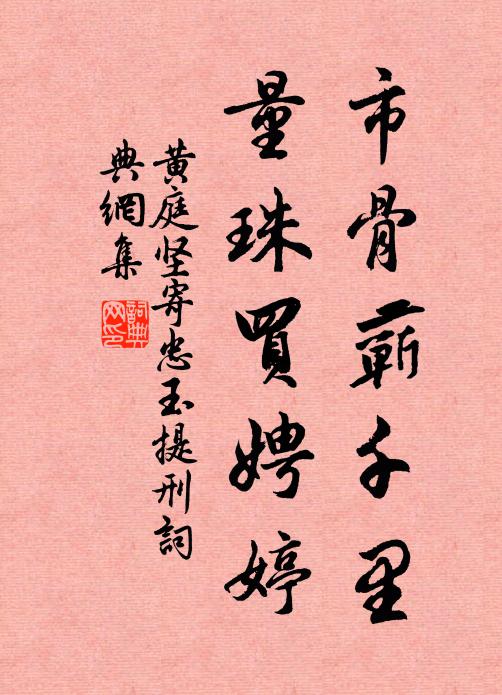 市骨蕲千里
量珠買娉婷
黄庭坚寄忠玉提刑詞
典網集
詞典网印